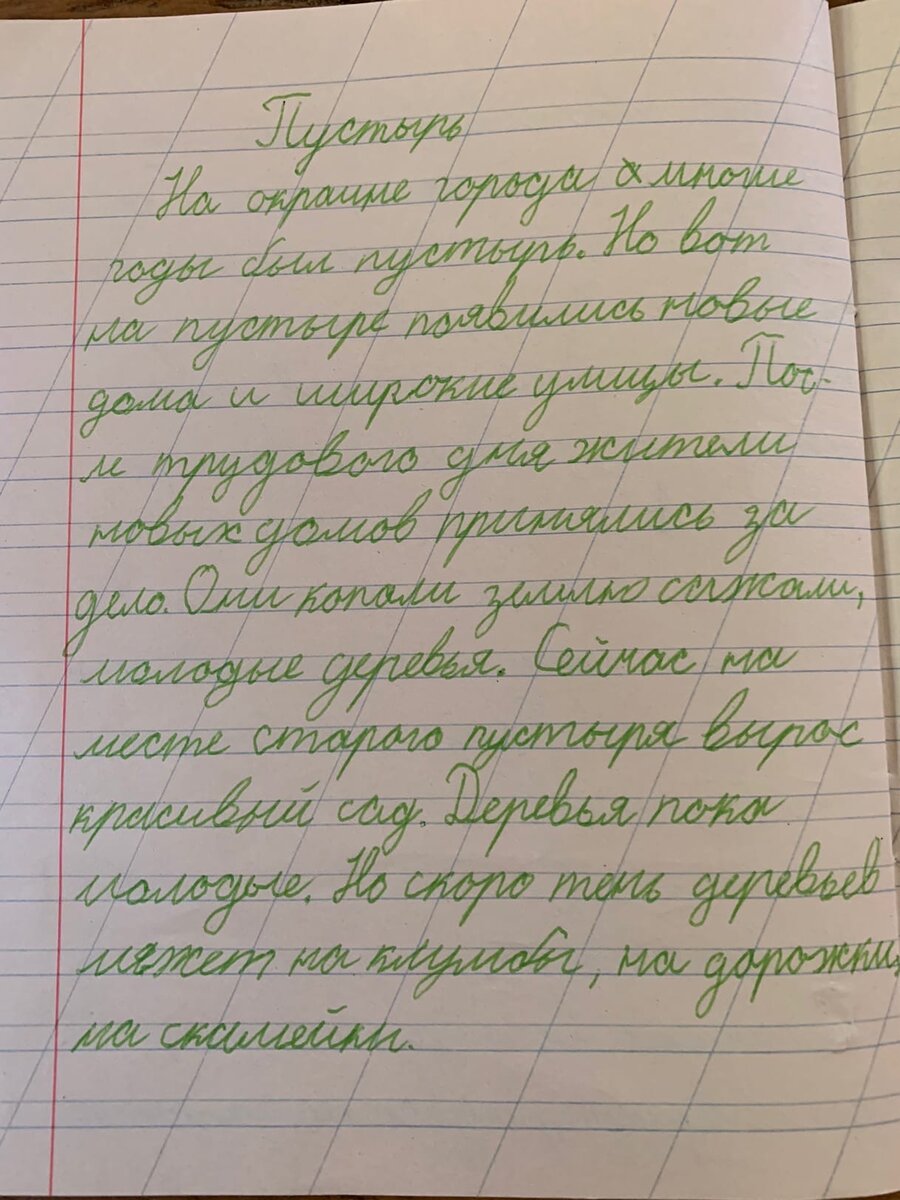 Пустырь
На окраине города многие
годы был пустырь. Но вот
на пустыре появились новые
дома и широкие улицы. Пос-
ле трудового дня жители
новых домов принялись за
дело. Они копали землю сажали,
молодые деревья. Сейчас на
месте старого пустыря вырос
красивый сад. Деревья пока
молодые. Но скоро тень деревьев
ляжет на клумбы, на дорожки,
на скамейки.